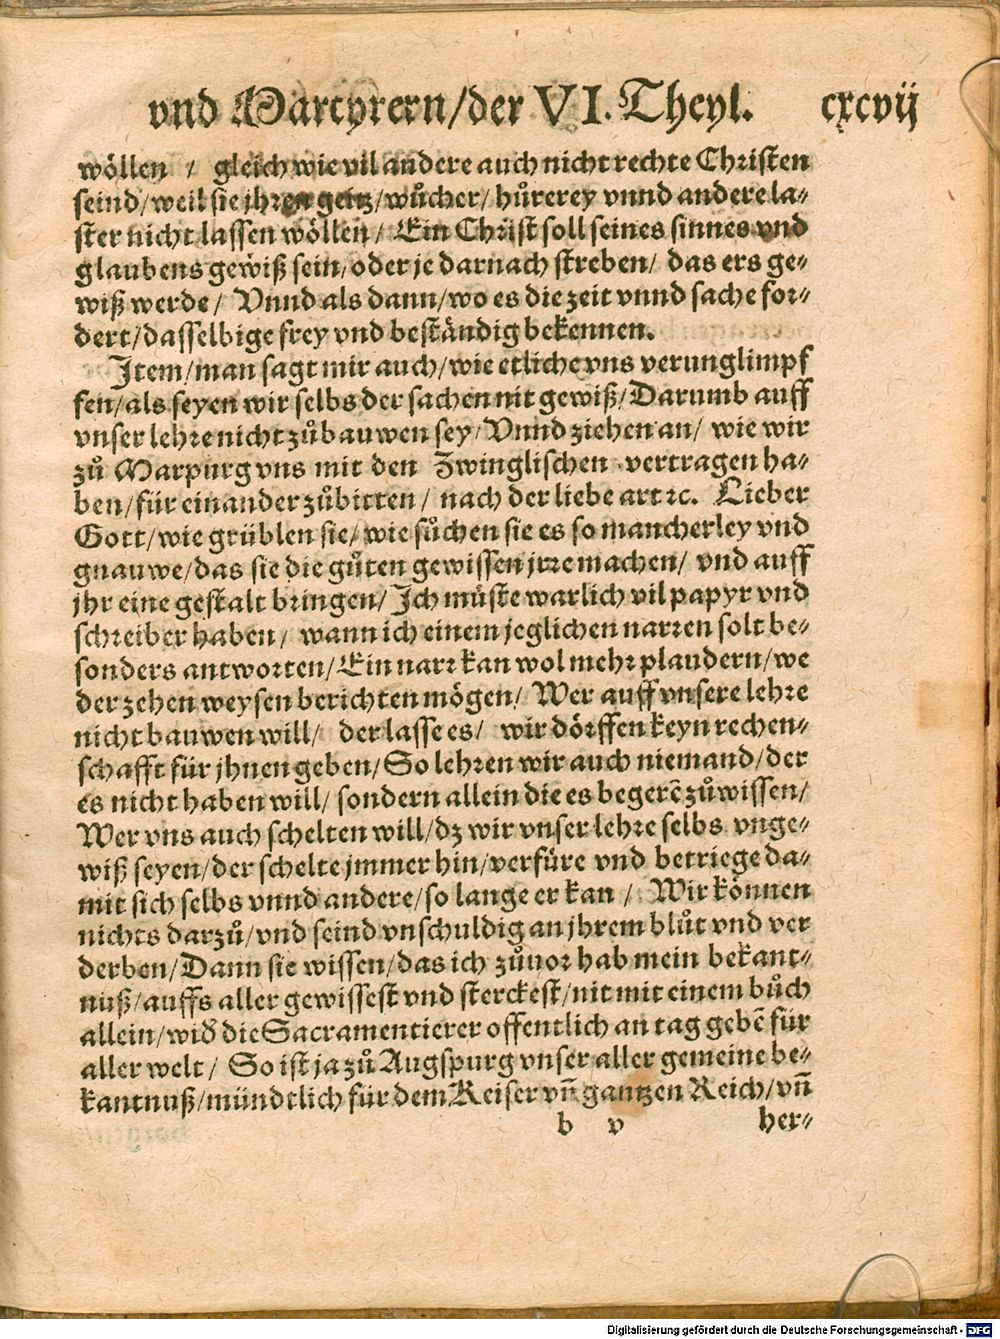 vnd Martyrern/der VI. Theyl. cxcvij
wöllen / gleich wie vil andere auch nicht rechte Christen
seind/weil sie jhren geitz/wůcher/hůrerey vnnd andere la⸗
ster nicht lassen wöllen/ Ein Christ soll seines sinnes vnd
glaubens gewiß sein/oder je darnach streben/ das ers ge⸗
wiß werde/ Vnnd als dann/wo es die zeit vnnd sache for⸗
dert/dasselbige frey vnd beständig bekennen.
Item/man sagt mir auch/wie etliche vns verunglimpf
fen/als seyen wir selbs der sachen nit gewiß/Darumb auff
vnser lehre nicht zůbauwen sey/Vnnd ziehen an/ wie wir
zů Marpurg vns mit den Zwinglischen vertragen ha⸗
ben/für einander zůbitten/ nach der liebe art ꝛc. Lieber
Gott/wie grüblen sie/wie sůchen sie es so mancherley vnd
gnauwe/das sie die gůten gewissen jrre machen/ vnd auff
jhr eine gestalt bringen/Ich můste warlich vil papyr vnd
schreiber haben/ wann ich einem jeglichen narren solt be⸗
sonders antworten/Ein narr kan wol mehr plaudern/we
der zehen weysen berichten mögen/ Wer auff vnsere lehre
nicht bauwen will/ der lasse es/ wir dörffen keyn rechen⸗
schafft für jhnen geben/So lehren wir auch niemand/der
es nicht haben will/ sondern allein die es begerẽ zůwissen/
Wer vns auch schelten will/dz wir vnser lehre selbs vnge⸗
wiß seyen/der schelte jmmer hin/verfüre vnd betriege da⸗
mit sich selbs vnnd andere/so lange er kan / Wir können
nichts darzů/vnd seind vnschuldig an jhrem blůt vnd ver
derben/Dann sie wissen/das ich zůuor hab mein bekant⸗
nuß/auffs aller gewissest vnd sterckest/nit mit einem bůch
allein/wid̃ die Sacramentierer offentlich an tag gebẽ für
aller welt/ So ist ja zů Augspurg vnser aller gemeine be⸗
kantnuß/mündtlich für dem Keiser vñ gantzen Reich/vñ
b v her⸗
Digitalisierung gefördert durch die Deutsche Forschungsgemeinschaft - DFG